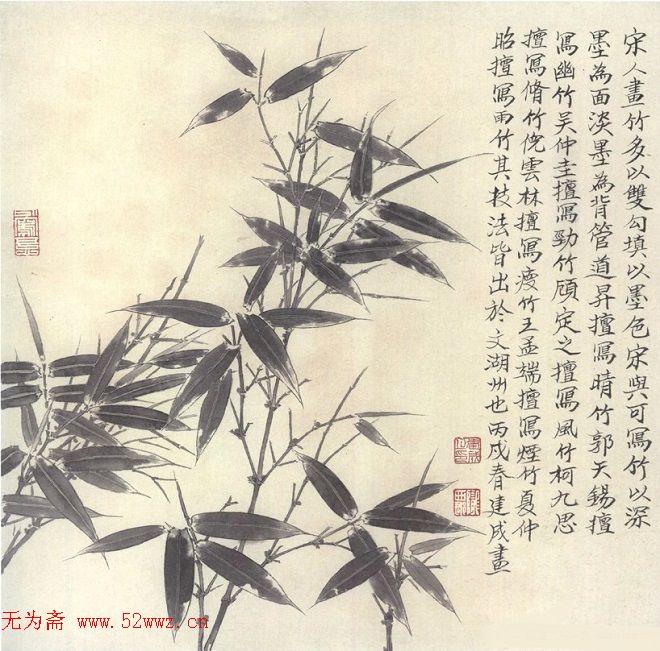 宋人畫竹多以雙勾填以墨色宋與可寫竹以深
墨為面淡墨為背管道昇擅寫晴竹郭天錫擅
寫幽竹吴仲圭擅寫勁竹顾定之擅寫風竹柯九思
擅寫脩竹倪雲林擅寫瘦竹王孟端擅寫煙竹夏仲
昭擅寫雨竹其技法皆出於文湖州也丙戌春建成畫
无为斋 www.52wwz.cn